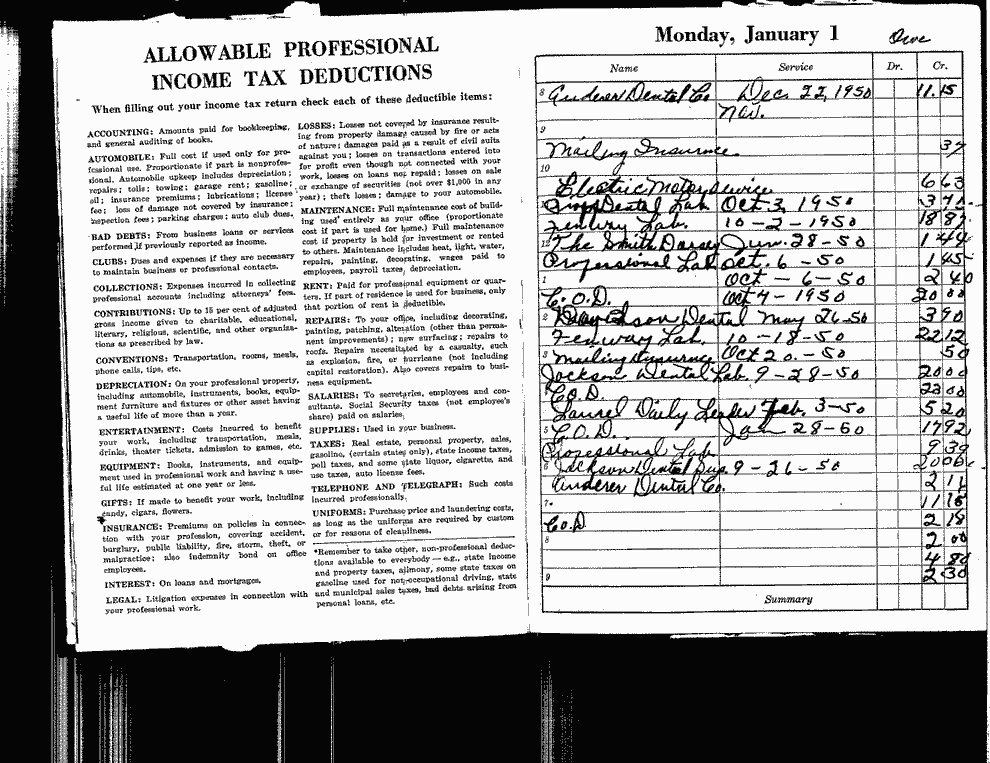 ALLOWABLE PROFESSIONAL
INCOME TAX DEDUCTIONS
When filling out your income tax return check each of these deductible items:
ACCOUNTING: Amounts paid for bookkeeping,
and general auditing of books.
AUTOMOBILE: Full cost if used only for pro-
fessional use. Proportionate if part is nonprofes-
sional. Automobile upkeep includes depreciation;
repairs; tolls; towing; garage rent; gasoline;
oil; insurance premiums; lubrications; license
fee; loss of damage not covered by insurance;
inspection fees; parking charges; auto club dues.
BAD DEBTS: From business loans or services
performed if previously reported as income.
CLUBS: Dues and expenses if they are necessary
to maintain business or professional contacts.
COLLECTIONS: Expenses incurred in collecting
professional accounts including attorneys' fees.
CONTRIBUTIONS: Up to 15 per cent of adjusted
gross income given to charitable, educational,
literary, religious, scientific, and other organiza-
tions as prescribed by law.
CONVENTIONS: Transportation, rooms, meals,
phone calls, tips, etc.
DEPRECIATION: On your professional property,
including automobile, instruments, books, equip-
ment furniture and fixtures or other asset having
a useful life of more than a year.
ENTERTAINMENT: Costs incurred to benefit
your work, including transportation, meals,
drinks, theater tickets, admission to games, etc.
EQUIPMENT: Books, instruments, and equip-
ment used in professional work and having a use-
ful life estimated at one year or less.
GIFTS: If made to benefit your work, including
candy, cigars, flowers.
INSURANCE: Premiums on policies in connec-
tion with your profession, covering accident,
burglary, public liability, fire, storm, theft, or
malpractice; also indemnity bond on office
employees.
INTEREST: On loans and mortgages.
LEGAL: Litigation expenses in connection with
your professional work.
LOSSES: Losses not covered by insurance result-
ing from property damage caused by fire or acts
of nature; damages paid as a result of civil suits
against you; losses on transactions entered into
for profit even though not connected with your
work, losses on loans not repaid; losses on sale
or exchange of securities (not over $1,000 in any
year); theft losses; damage to your automobile.
MAINTENANCE: Full maintenance cost of build-
ing used* entirely as your office (proportionate
cost if part is used for home.) Full maintenance
cost if property is held for investment or rented
to others. Maintenance includes heat, light, water,
repairs, painting, decorating, wages paid to
employees, payroll taxes, depreciation.
RENT: Paid for professional equipment or quar-
ters. If part of residence is used for business, only
that portion of rent is deductible.
REPAIRS: To your office, including decorating,
painting, patching, alteration (other than perma-
nent improvements); new surfacing; repairs to
roofs. Repairs necessitated by a casualty, such
as explosion, fire, or hurricane (not including
capital restoration). Also covers repairs to busi-
ness equipment.
SALARIES: To secretaries, employees and con-
sultants. Social Security taxes (not employee's
share) paid on salaries.
SUPPLIES: Used in your business.
TAXES: Real estate, personal property, sales,
gasoline, (certain states only), state income taxes,
poll taxes, and some state liquor, cigarette, and
use taxes, auto license fees.
TELEPHONE AND TELEGRAPH: Such costs
incurred professionally.
UNIFORMS: Purchase price and laundering costs,
as long as the uniforms are required by custom
or for reasons of cleanliness.
*Remember to take other, non-professional deduc-
tions available to everybody — e.g., state income
and property taxes, alimony, some state taxes on
gasoline used for not-occupational driving, state
and municipal sales taxes, bad debts arising from
personal loans, etc.
Monday, January 1 Owe
Name Service Dr. Cr.
8 Anderer Dental Co Dec. 22, 1950 11.15
Nov.
9
Mailing Insurance 37
10
Electric Motor Service 6 63
Dental Lab. Oct. 3, 1950
Fenway Lab. 10-2-1950 18 87
12 The Smith Dorsey Jun. 28-50 1 44
Professional Lab Oct. 6-50 1 45
1 Oct-6-50 2 40
C.O.D. Oct 4-1950 20 00
2 Davidson Dental May 26-50 3 90
Fenway Lab. 10-18-50 22 12
3 Mailing Insurance Oct 20-50 50
Jackson Dental Lab. 9-28-50 20 00
C.O.D. 22 00
Laurel Daily Leader Feb. 3-50 5 20
5 C.O.D. Jan 28-50 17 92
Professional Lab. 9 39
6 Jackson Dental Sup. 9-26-50 20 06
Anderer Dental Co. 2 11
7 11 15
C.O.D. 2 18
8 2 00
4 80
9 2 30
Summary